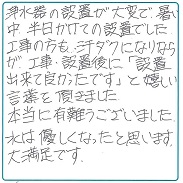 浄水器の設置が大変で、暑い
中 半日かけての設置でした
工事の方も、汗ダクになりなら
が、工事、設置後に「設置
出来て良かったです」と嬉しい
言葉を頂きました
本当に有難うございました。
水は優しくなったと思います。
大満足です。